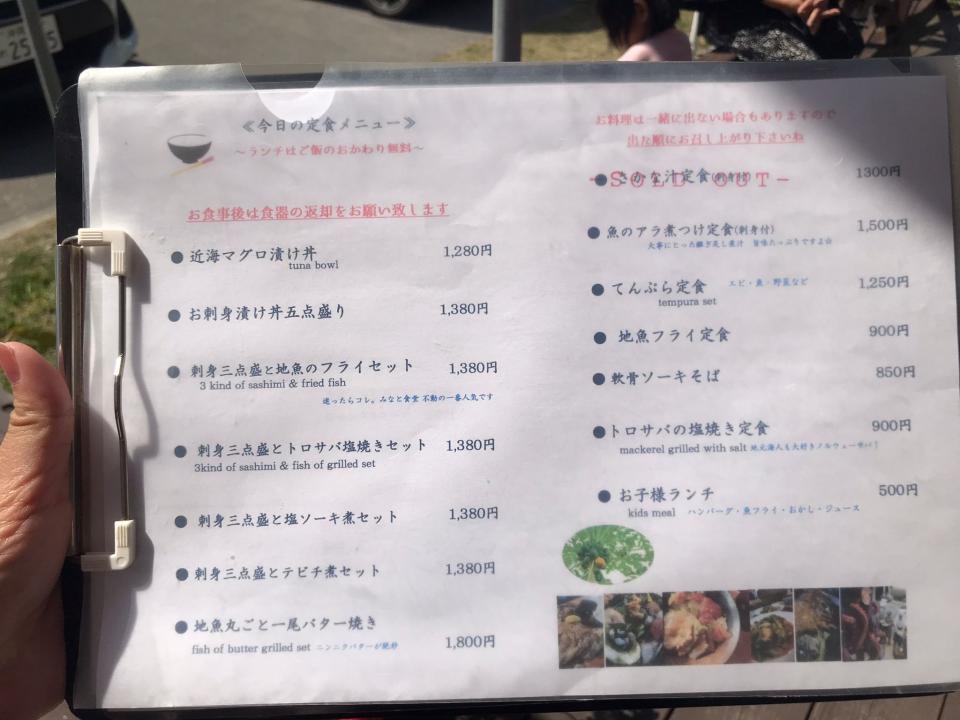 ≪今日の定食メニュー≫
～ランチはご飯のおかわり無料～
お食事後は食器の返却をお願い致します
●近海マグロ漬け丼 1,280円
tuna bowl
●お刺身漬け丼五点盛り 1,380円
●刺身三点盛と地魚のフライセット 1,380円
3 kind of sashimi & fried fish
迷ったらコレ。みなと食堂 不動の一番人気です
●刺身三点盛とトロサバ塩焼きセット 1,380円
3kind of sashimi & fish of grilled set
●刺身三点盛と塩ソーキ煮セット 1,380円
●刺身三点盛とテビチ煮セット 1,380円
●地魚丸ごと一尾バター焼き 1,800円
fish of butter grilled set ニンニクバターが絶妙
お料理は一緒に出ない場合もありますので
出た順にお召し上がり下さいね
●さかな汁定食(刺身付) 1300円
-SOLD OUT-
●魚のアラ煮つけ定食(刺身付) 1,500円
大事にとった継ぎ足し煮汁 旨味たっぷりですよ☆
●てんぷら定食 エビ・魚・野菜など 1,250円
tempura set
●地魚フライ定食 900円
●軟骨ソーキそば 850円
●トロサバの塩焼き定食 900円
mackerel grilled with salt 地元海人も大好きノルウェーサバ！
●お子様ランチ 500円
kids meal ハンバーグ・魚フライ・おかし・ジュース